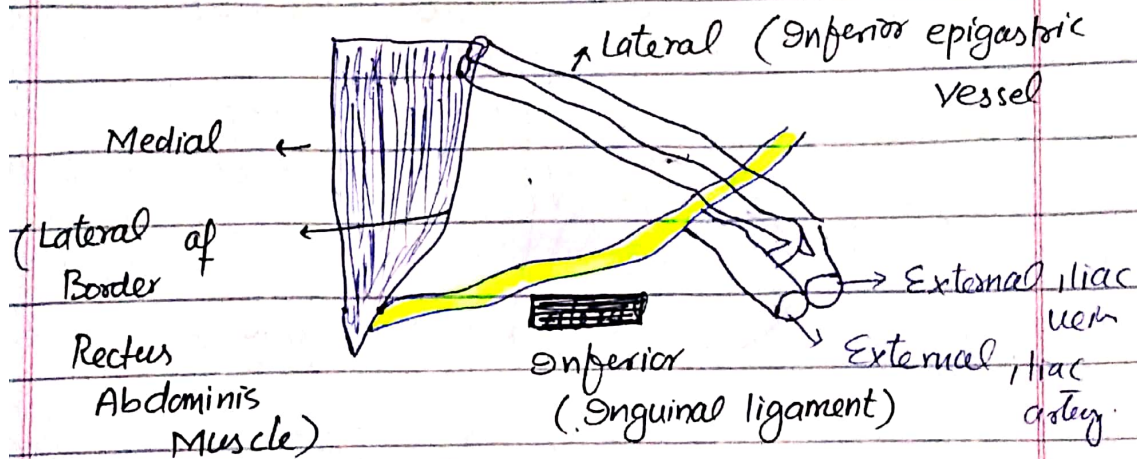 Lateral (Inferior epigastric
Vessel
Medial
(Lateral of
Border
Rectus
Abdominis
Muscle)
Inferior
(Inguinal ligament)
External iliac
vein
External iliac
artery.